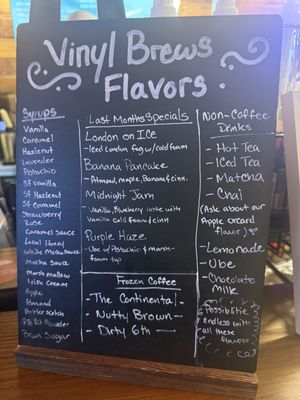 Vinyl Brews
Flavors.
Syrups
Vanilla
Caramel
Hazelnut
Lavender
Pistachio
Sf Vanilla
Sf Hazelnut
Sf Caramel
Strawberry
Rose
Caramel Sauce
Local Honey
White Mocha Sauce
Mocha Sauce
Marshmallow
Irish Cream
Apple
Almond
Butterscotch
PB Powder
Brown Sugar
Last Months Specials
London on Ice
- Iced London fog w/ cold foam
Banana Pancake
- Almond, maple, Banana & cinn.
Midnight Jam
- Vanilla, Blueberry latte with
Vanilla cold foam & cinn
Purple Haze
- Ube w/ Pistachio & marsh-
foam top
Frozen Coffee
- The Continental -
- Nutty Brown -
- Dirty 6th -
Non-Coffee
Drinks
- Hot Tea
- Iced Tea
- Matcha
- Chai
(Ask about our
Apple orchard
flavor)
- Lemonade
- Ube
- Chocolate
Milk
Possibilities
Endless with
all these
flavors